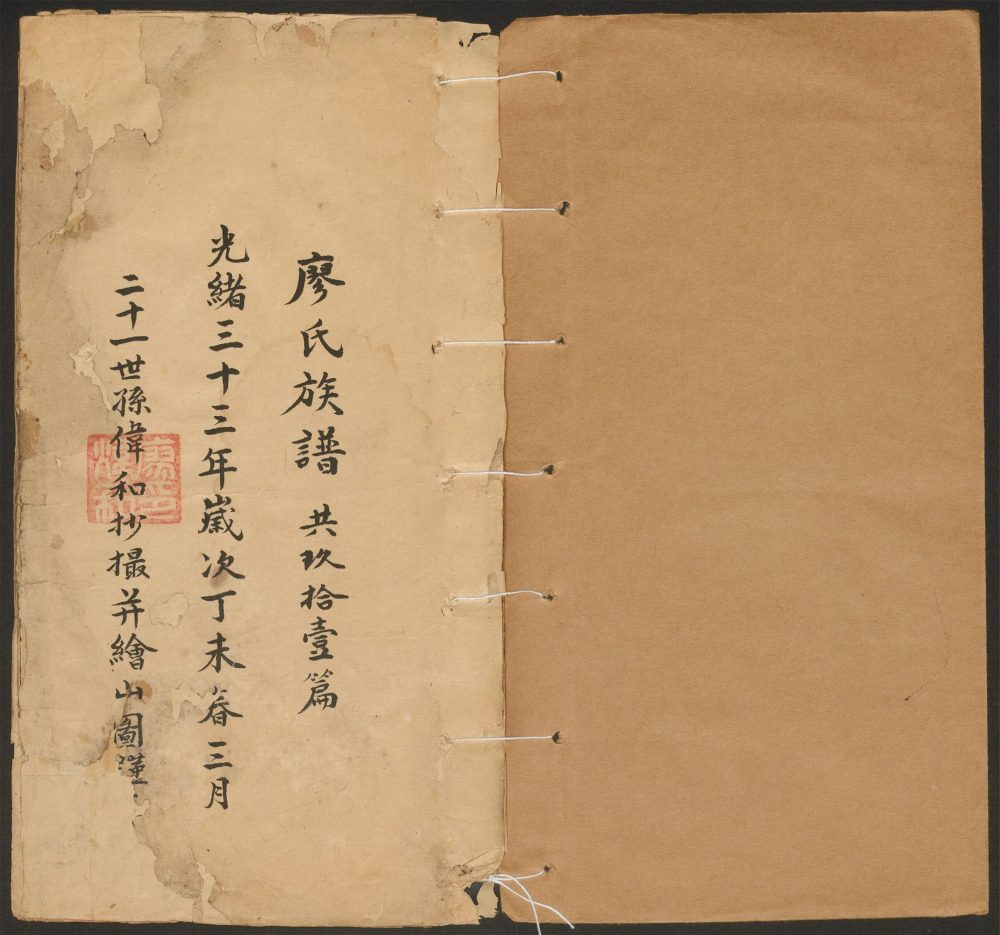 廖氏族譜 共玖拾壹篇
光緒三十三年歲次丁未春三月
二十一世孫偉和抄撮并繪山圖謹